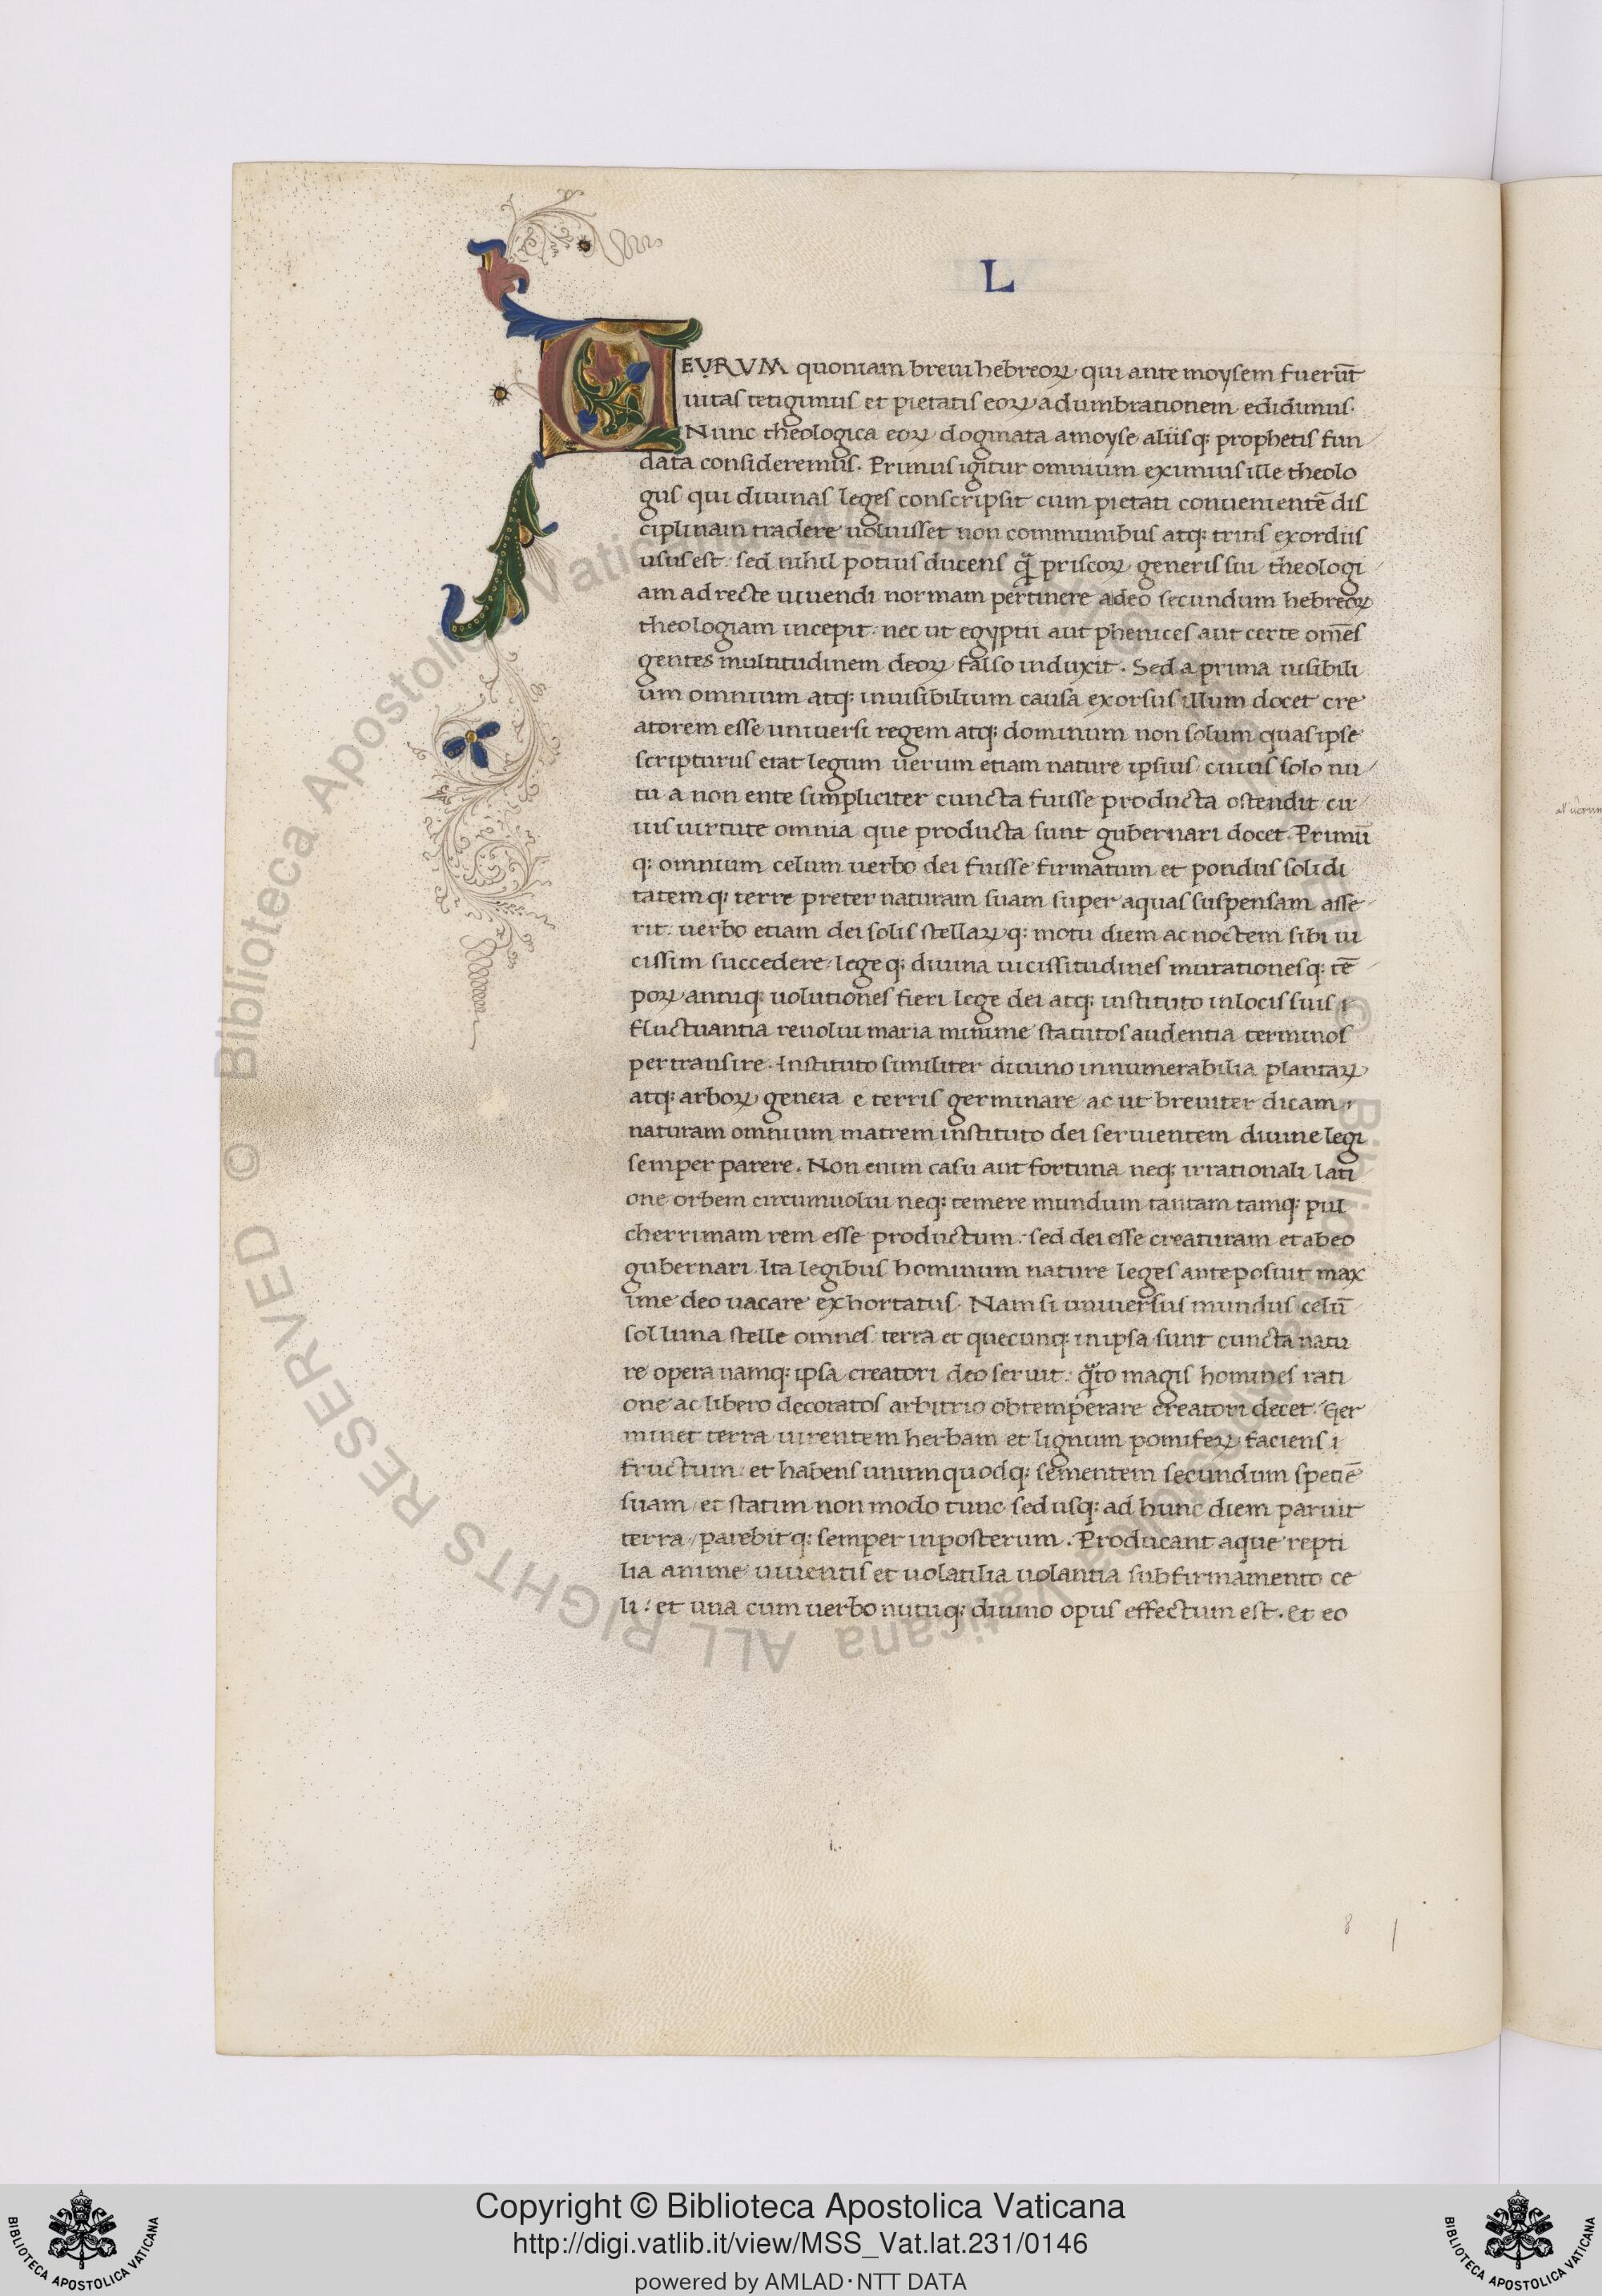 L
VEURUM quoniam breui hebreoꝝ qui ante moysem fuerūt
uitas tetigimus et pietatis eoꝝ adumbrationem edidimus.
Nunc theologica eoꝝ dogmata a moyse aliisq; prophetis fun
data consideremus. Primus igitur omnium eximius ille theolo
gus qui diuinas leges conscripsit cum pietati conuenientē dis
ciplinam tradere uoluisset non communibus atq; tritis exordiis
usus est. sed nihil potius ducens qᷓ priscoꝝ generis sui theologi
am ad recte uiuendi normam pertinere adeo secundum hebreoꝝ
theologiam incepit. nec ut egyptii aut phenices aut certe om̄es
gentes multitudinem deoꝝ falso induxit. Sed a prima uisibili
um omnium atq; inuisibilium causa exorsus illum docet cre
atorem esse uniuersi regem atq; dominum non solum quas ipse
scripturus erat legum uerum etiam nature ipsius cuius solo nu
tu a non ente simpliciter cuncta fuisse producta ostendit cu
ius uirtute omnia que producta sunt gubernari docet. Primū
q; omnium celum uerbo dei fuisse firmatum et pondus solidi
tatemq; terre preter naturam suam super aquas suspensam asse
rit. uerbo etiam dei solis stellaꝝq; motu diem ac noctem sibi ui
cissim succedere. legeq; diuina uicissitudines mutationesq; tē
poꝝ anniq; uolutiones fieri lege dei atq; instituto in locis suis
fluctuantia reuolui maria minime statutos audentia terminos
pertransire. Instituto similiter diuino innumerabilia plantaꝝ
atq; arboꝝ genera e terris germinare ac ut breuiter dicam
naturam omnium matrem instituto dei seruientem diuine legi
semper parere. Non enim casu aut fortuna neq; irrationali lati
one orbem circumuolui neq; temere mundum tantam tamq; pul
cherrimam rem esse productum. sed dei esse creaturam et ab eo
gubernari. Ita legibus hominum nature leges anteposuit max
ime deo uacare exhortatus. Nam si uniuersus mundus celū
sol luna stelle omnes terra et quecunq; in ipsa sunt cuncta natu
re opera namq; ipsa creatori deo seruit. qᷓto magis homines rati
one ac libero decoratos arbitrio obtemperare creatori decet. Ger
minet terra uirentem herbam et lignum pomifeꝝ faciens
fructum. et habens unumquodq; sementem secundum spetiē
suam et statim non modo tunc sed usq; ad hunc diem paruit
terra parebitq; semper in posterum. Producant aque repti
lia anime uiuentis et uolatilia uolantia sub firmamento ce
li: et una cum uerbo nutuq; diuino opus effectum est. Et eo
8
Copyright © Biblioteca Apostolica Vaticana
http://digi.vatlib.it/view/MSS_Vat.lat.231/0146
powered by AMLAD·NTT DATA
BIBLIOTECA APOSTOLICA VATICANA
BIBLIOTECA APOSTOLICA VATICANA
© Biblioteca Apostolica Vaticana ALL RIGHTS RESERVED